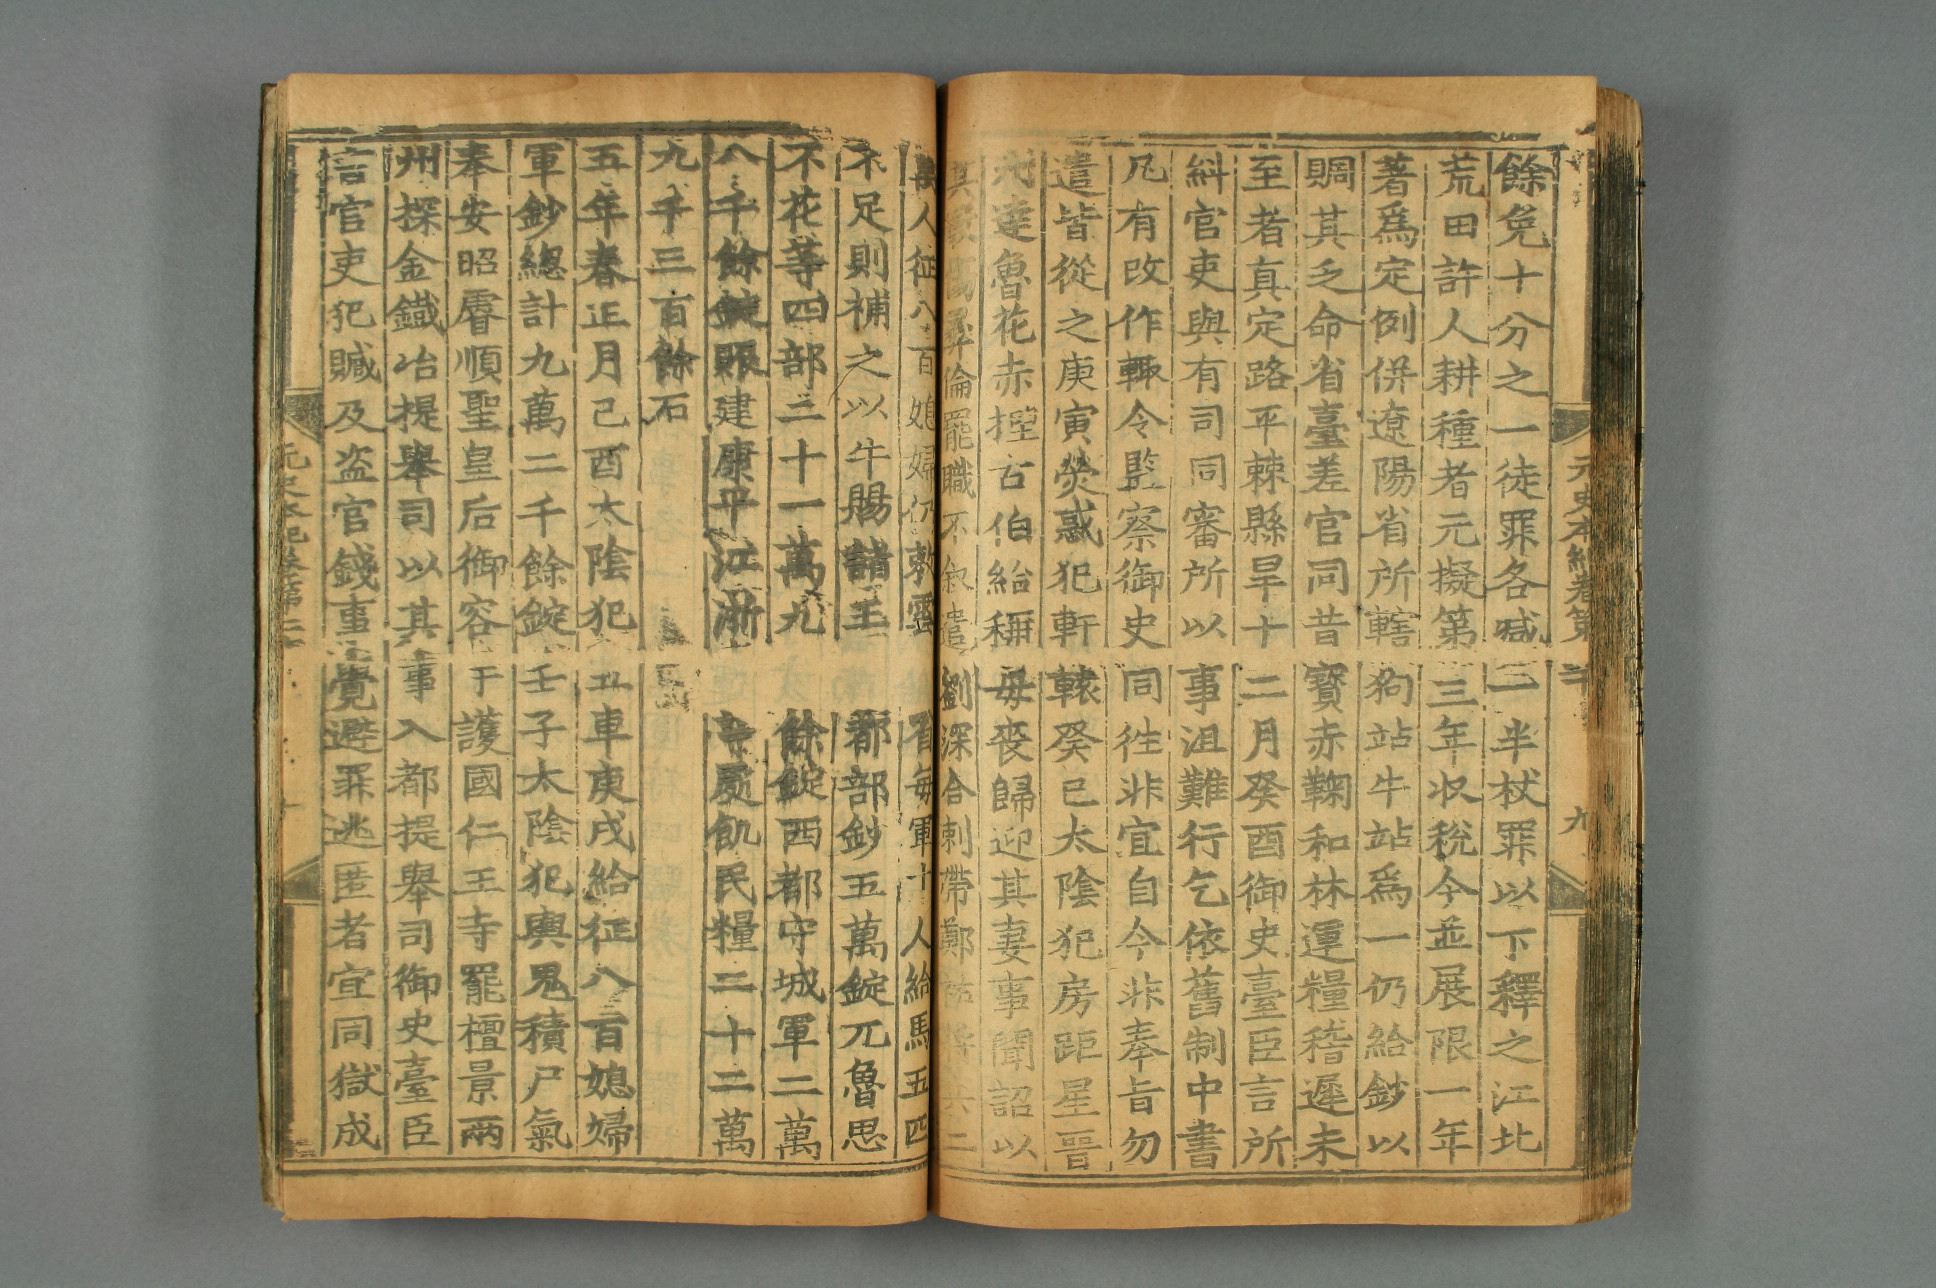 元史本紀卷第二十
九
餘免十分之一徒罪各減一半杖罪以下釋之江北
荒田許人耕種者元擬第三年收稅今並展限一年
著爲定例併遼陽省所轄狗站牛站爲一仍給鈔以
賙其乏命省臺差官同昔寶赤鞠和林運糧稽遲未
至者真定路平棘縣旱十二月癸酉御史臺臣言所
糾官吏與有司同審所以事沮難行乞依舊制中書
凡有改作輒令監察御史同徃非宜自今非奉旨勿
遣皆從之庚寅熒惑犯軒轅癸巳太陰犯房距星晉
州達魯花赤捏古伯紿稱母喪歸迎其妻事聞詔以
其敗彝倫罷職不叙遣劉深合剌帶鄭祐將兵二
萬人征八百媳婦仍敕雲省每軍十人給馬五匹
不足則補之以牛賜諸王都部鈔五萬錠兀魯思
不花等四部二十一萬九餘錠西都守城軍二萬
八千餘錠賑建康平江浙等處飢民糧二十二萬
九千三百餘石
五年春正月己酉太陰犯五車庚戌給征八百媳婦
軍鈔總計九萬二千餘錠壬子太陰犯輿鬼積尸氣
奉安昭睿順聖皇后御容于護國仁王寺罷檀景兩
州採金鐵冶提舉司以其事入都提舉司御史臺臣
言官吏犯贓及盜官錢事覺避罪逃匿者宜同獄成
元史本紀卷第二十